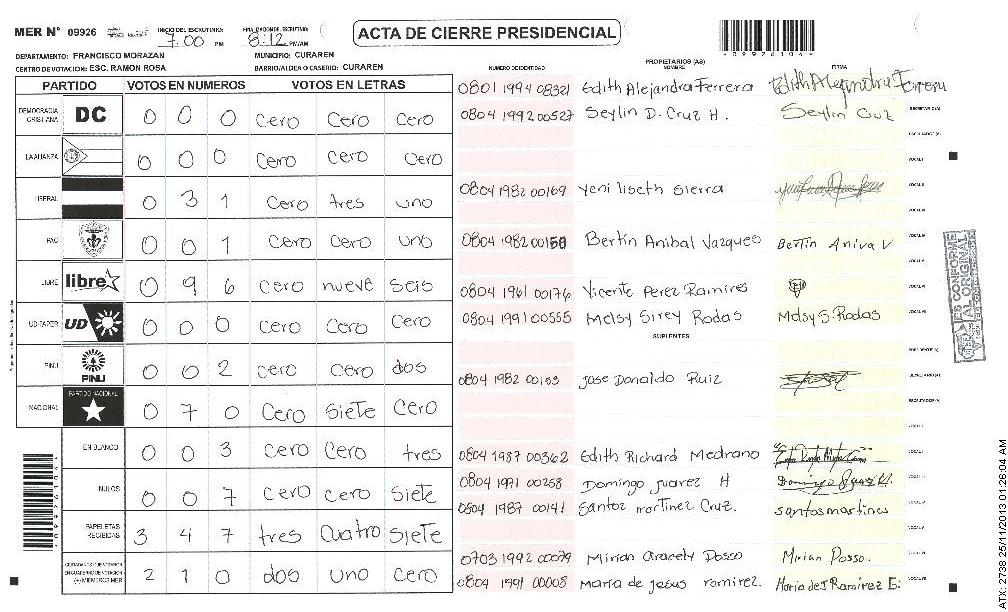 MER N° 09926 INICIO DEL ESCRUTINIO: 7:00 PM 8:12 PM/AM
ACTA DE CIERRE PRESIDENCIAL
DEPARTAMENTO: FRANCISCO MORAZAN MUNICIPIO: CURAREN
CENTRO DE VOTACION: ESC. RAMON ROSA BARRIO/ALDEA O CASERIO: CURAREN
PARTIDO VOTOS EN NUMEROS VOTOS EN LETRAS
DEMOCRACIA CRISTIANA DC 0 0 0 Cero Cero Cero
LA ALIANZA 0 0 0 Cero Cero Cero
LIBERAL 0 3 1 Cero tres uno
PAC 0 0 1 Cero Cero uno
LIBRE libre 0 9 6 Cero nueve seis
UD-FAPER UD 0 0 0 Cero Cero Cero
PINU PINU 0 0 2 cero Cero dos
NACIONAL PARTIDO NACIONAL 0 7 0 Cero Siete Cero
EN BLANCO 0 0 3 Cero Cero tres
NULOS 0 0 7 Cero Cero Siete
PAPELETAS RECIBIDAS 3 4 7 tres Cuatro Siete
CIUDADANOS QUE VOTARON EN CUADERNO DE VOTACION (+) MIEMBROS MER 2 1 0 dos uno Cero
NUMERO DE IDENTIDAD PROPIETARIOS (AS) NOMBRE FIRMA
0801 1994 08321 Edith Alejandra Ferrera Edith Alejandra Ferrera
0804 1992 00527 Seylin D. Cruz H. Seylin Cruz
0804 1982 00169 Yeni liseth Sierra
0804 1982 00150 Bertin Anibal Vazques Bertin Aniva V
0804 1961 00176 Vicente Perez Ramires
0804 1991 00555 Melsy Sirey Rodas Melsy S. Rodas
SUPLENTES
0804 1982 00153 Jose Donaldo Ruiz
0804 1987 00362 Edith Richard Medrano
0804 1971 00258 Domingo juarez H
0804 1987 00141 Santoz martinez Cruz. santos martines
0703 1992 00079 Mirian aracely Posso Mirian Posso.
0804 1991 00008 maria de jesus ramirez. Maria de J Ramirez E.
ES CONFORME AL ORIGINAL
ATX: 2738 25/11/2013 01:26:04 AM